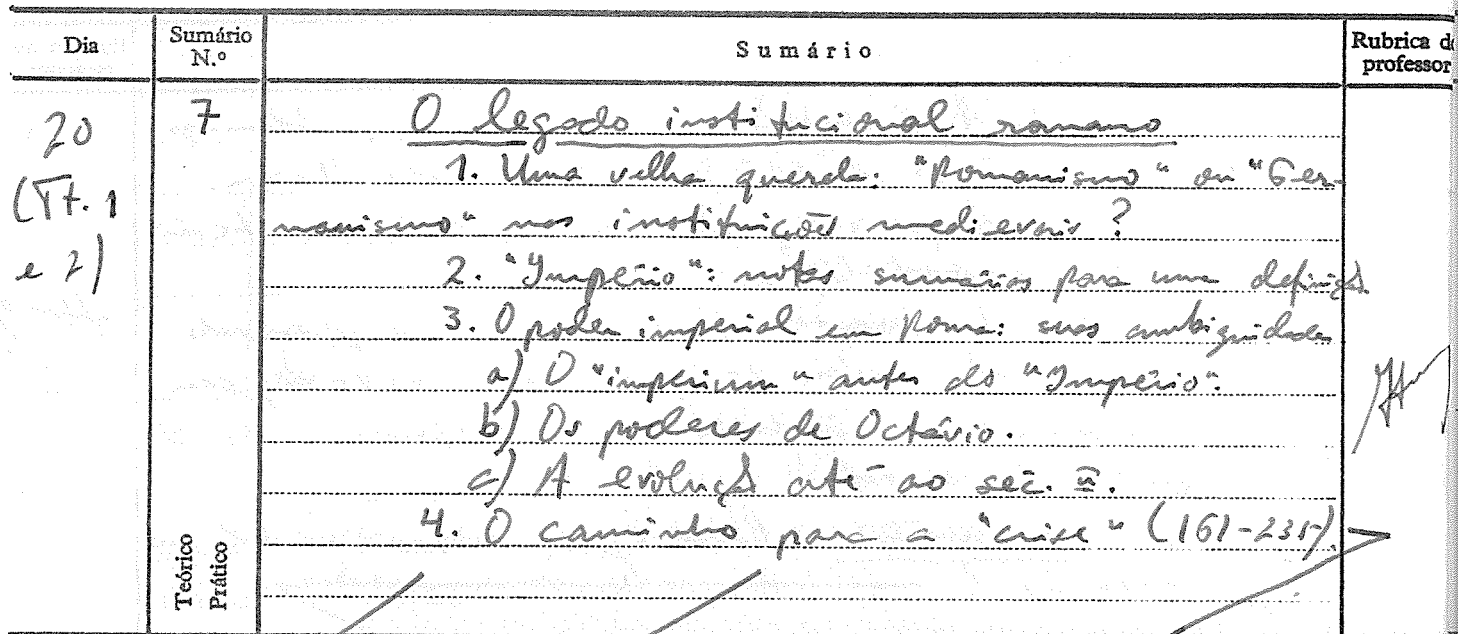 Dia Sumário N.º Sumário Rubrica d professor
20 7 O legado institucional romano
1. Uma velha querela: "Romanismo" ou "Ger-
(Tt. 1 manismo" nas instituições medievais?
e 2) 2. "Império": notas sumárias para uma definição
3. O poder imperial em Roma: suas ambiguidades
a) O "imperium" antes do "Império".
b) Os poderes de Octávio.
c) A evolução até ao séc. II.
4. O caminho para a "crise" (161-235).
Teórico
Prático